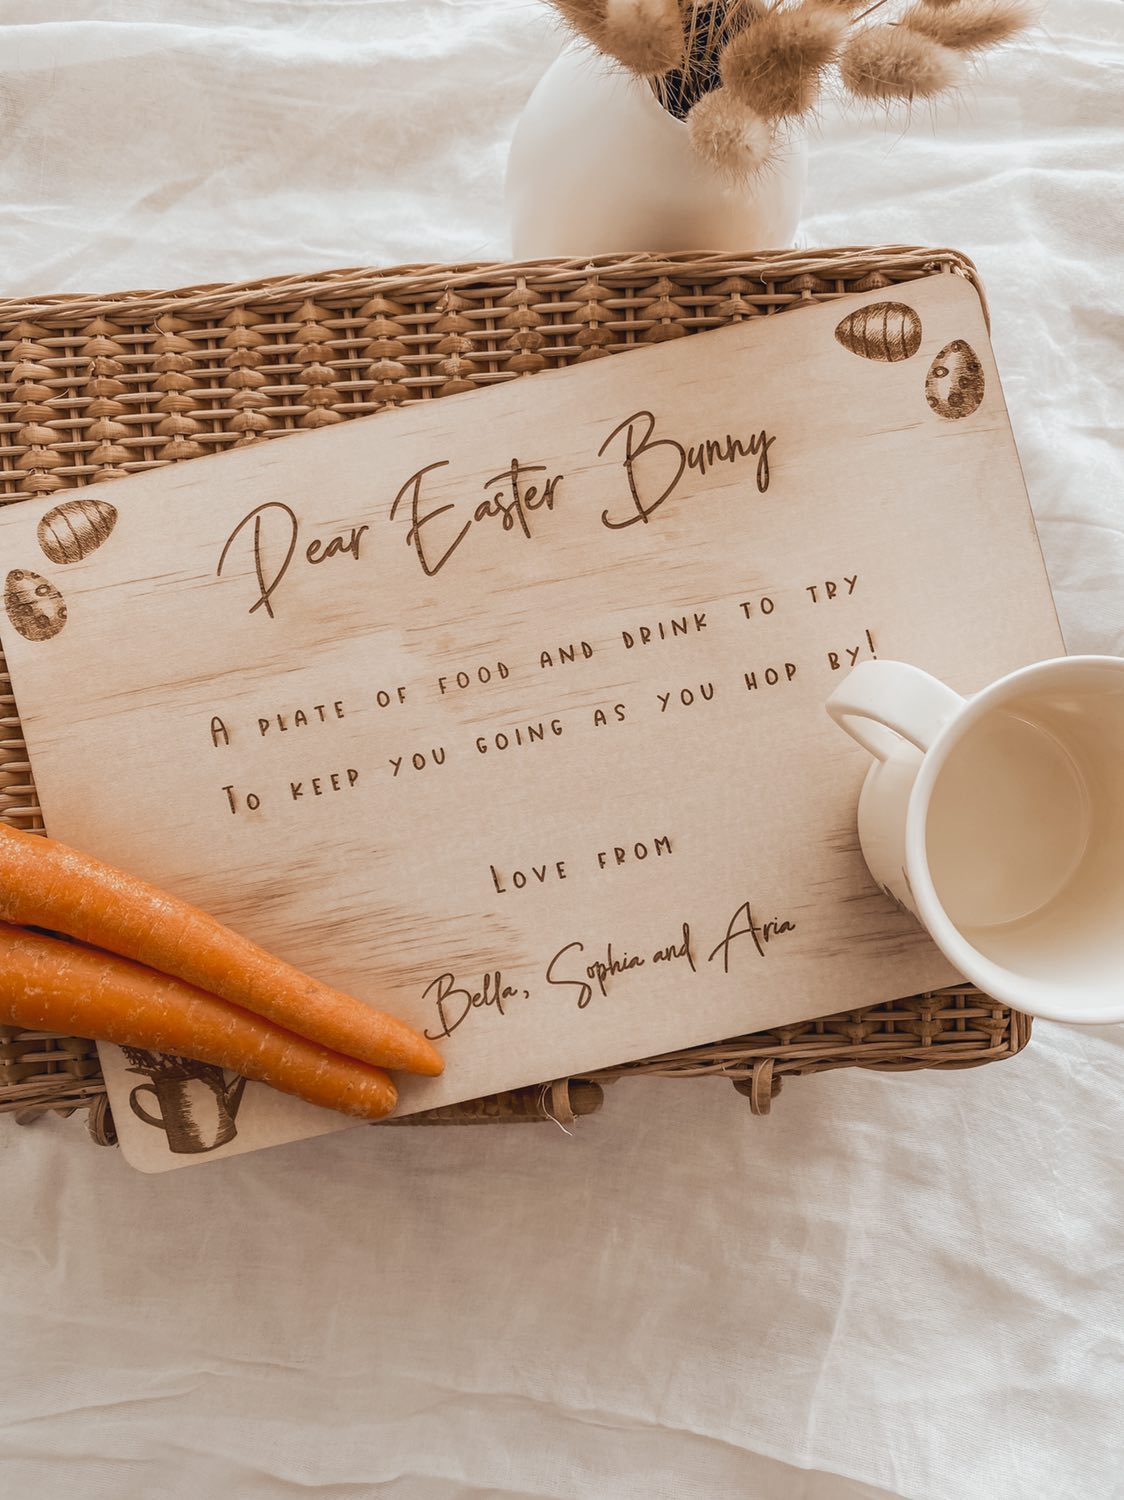 Dear Easter Bunny
A PLATE OF FOOD AND DRINK TO TRY
TO KEEP YOU GOING AS YOU HOP BY!
LOVE FROM
Bella, Sophia and Aria